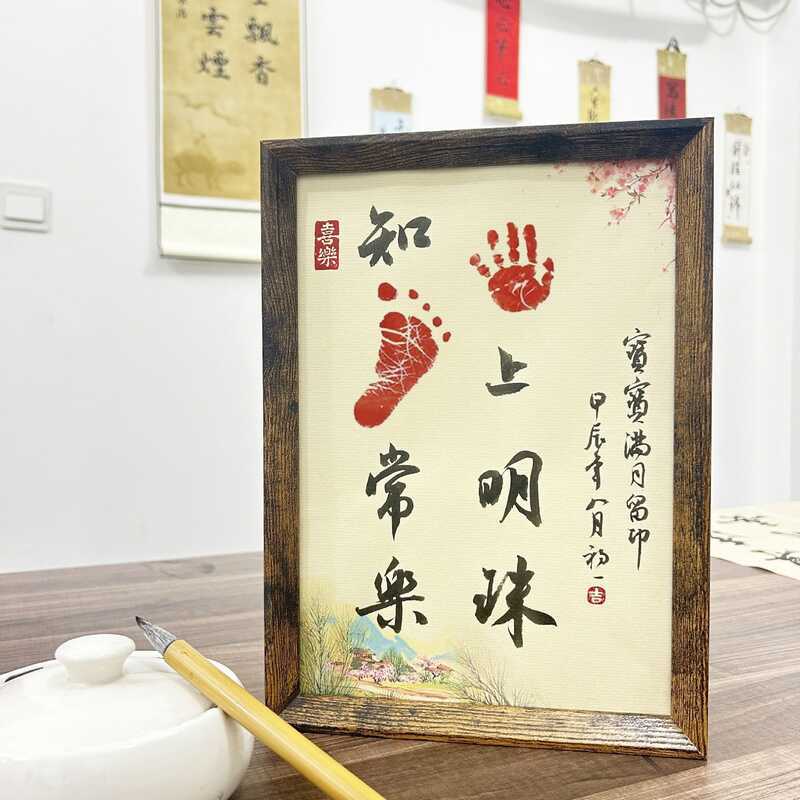 上明珠
知常樂
喜樂
寶寶滿月留印
甲辰年八月初一
吉
飄香
雲煙